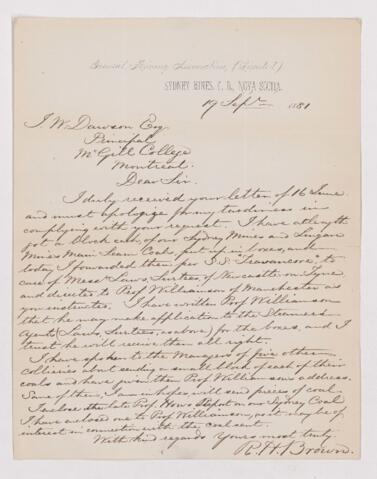 General Mining Association, (Limited.)
SYDNEY MINES, C. B., NOVA SCOTIA.
19 Sepr 1881
J. W. Dawson Esq
Principal
McGill College
Montreal.
Dear Sir.
I duly received your letter of 16 June
and must apologise for my tardiness in
complying with your request. I have at length
got a block each, of our Sydney Mines and Lingan
Mines Main Seam Coals put up in boxes, and
today I forwarded them per S.S. "Travancore" to
care of Messrs Laws, Surtees, of Newcastle on Tyne
and directed to Prof Williamson of Manchester as
you instructed. I have written Prof Williamson
that he may make application to the Steamers
Agents (Laws, Surtees, as above) for the boxes, and I
trust he will receive them all right.
I have spoken to the Managers of five other
collieries about sending a small block of each of their
coals and have given them Prof Williamson's address.
Some of them, I am in hopes will send pieces of coal.
I enclose the late Prof. How's Report on our Sydney Coal
I have enclosed one to Prof Williamson, as it may be of
interest in connection with the coal sent.
With kind regards Yours most truly
R. H. Brown.